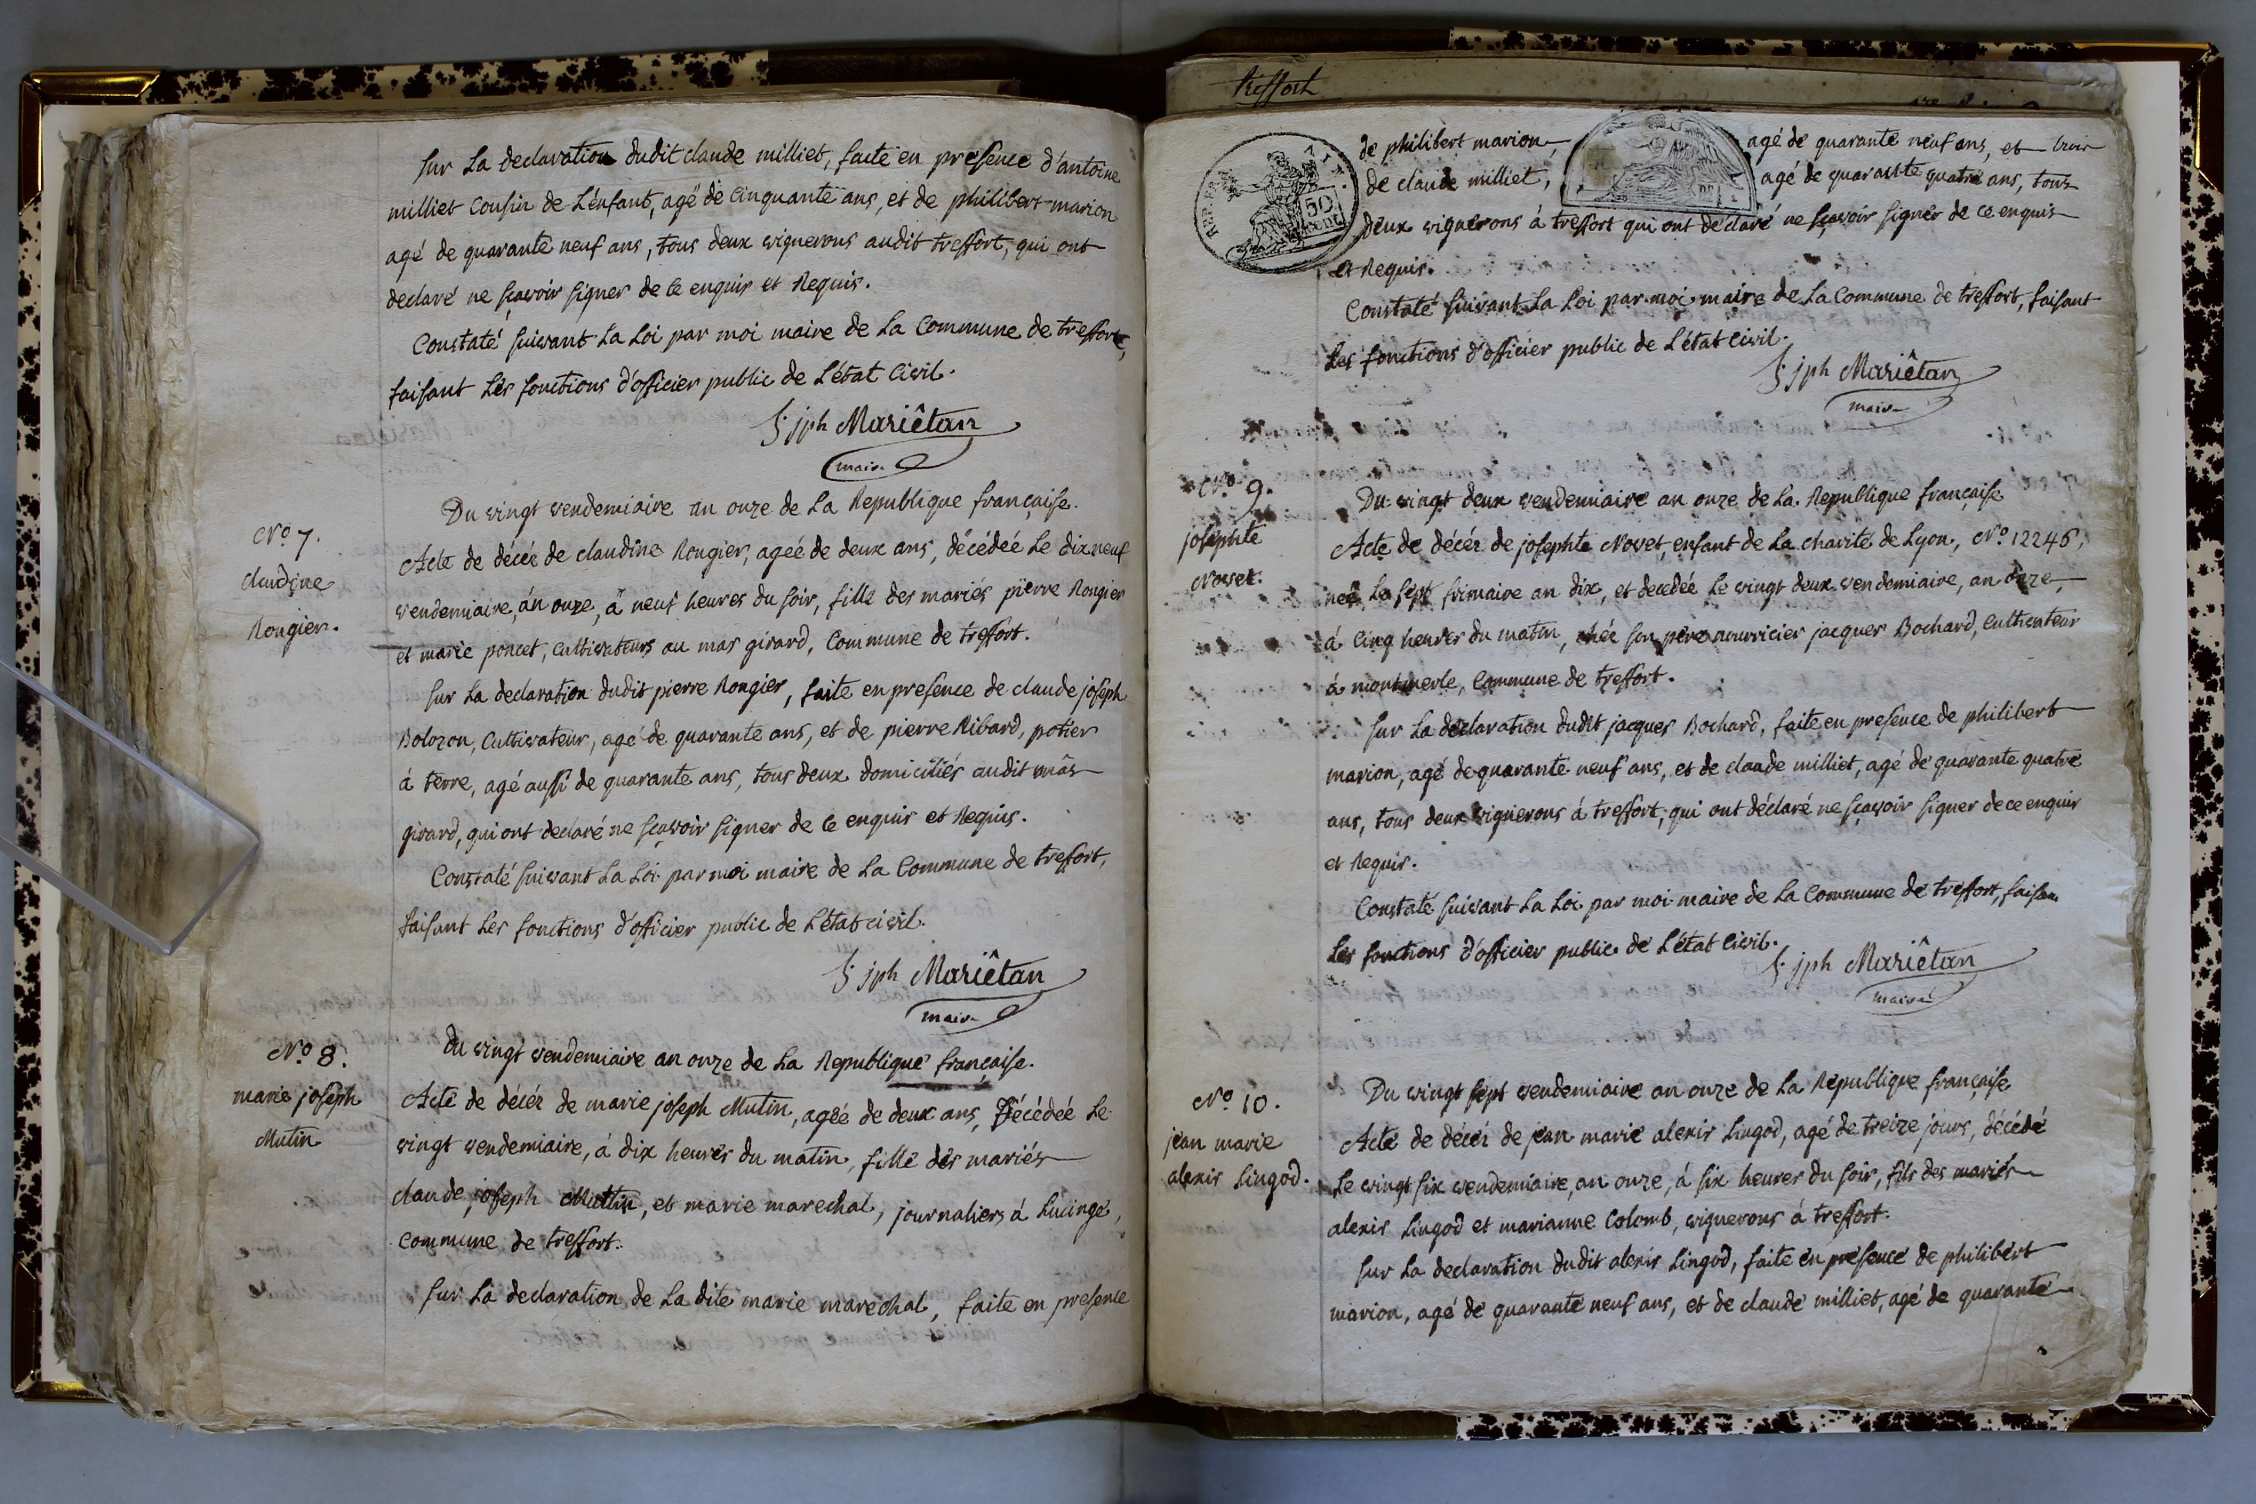 sur La declaration dudit claude milliet, faite en presence d'antoine
milliet Cousin de L'enfant, agé de Cinquante ans, et de philibert marion
agé de quarante neuf ans, tous deux vignerons audit treffort, qui ont
declaré ne sçavoir signer de ce enquis et Requis.
Constaté suivant La Loi par moi maire de La Commune de treffort,
faisant Les fonctions d'officier public de L'état Civil.
jph Mariêtan
maire
Du vingt vendemiaire an onze de La Republique française.
No 7.
claudine
Rougier.
Acte de décès de claudine Rougier, ageé de deux ans, décédeé Le dix neuf
vendemiaire, an onze, à neuf heures du soir, fille des mariés pierre Rougier
et marie poncet, cultivateurs au mas girard, Commune de treffort.
sur La declaration dudit pierre Rougier, faite en presence de claude joseph
Bolozon, Cultivateur, agé de quarante ans, et de pierre Ribard, potier
à terre, agé aussi de quarante ans, tous deux domiciliés audit mas
girard, qui ont declaré ne sçavoir signer de ce enquis et Requis.
Constaté suivant La Loi par moi maire de La Commune de treffort,
faisant Les fonctions d'officier public de L'état civil.
jph Mariêtan
maire
No 8.
marie joseph
Mutin
Du vingt vendemiaire an onze de La Republique française.
Acte de décès de marie joseph Mutin, ageé de deux ans, Décédeé Le
vingt vendemiaire, à dix heures du matin, fille des mariés
claude joseph Mutin, et marie marechal, journaliers à Lucinge,
Commune de treffort.
sur La declaration de La dite marie marechal, faite en presence
Treffort
de philibert marion, agé de quarante neuf ans, et
de claude milliet, agé de quarante quatre ans, tous
deux vignerons à treffort qui ont déclaré ne sçavoir signer de ce enquis
et Requis.
50
Constaté suivant La Loi par moi maire de La Commune de treffort, faisant
Les fonctions d'officier public de L'état civil.
jph Mariêtan
maire
No 9.
josephte
Novet.
Du vingt deux vendemiaire an onze de La Republique française
Acte de décès de josephte Novet, enfant de La charité de Lyon, No 12246,
neé Le sept frimaire an dix, et decedeé Le vingt deux vendemiaire, an onze,
à Cinq heures du matin, chés son père nourricier jacques Bochard, Cultivateur
à montmerle, Commune de treffort.
sur La declaration dudit jacques Bochard, faite en presence de philibert
marion, agé de quarante neuf ans, et de claude milliet, agé de quarante quatre
ans, tous deux vignerons à treffort, qui ont déclaré ne sçavoir signer de ce enquis
et Requis.
Constaté suivant La Loi par moi maire de La Commune de treffort, faisant
Les fonctions d'officier public de L'état Civil.
jph Mariêtan
maire
No 10.
jean marie
alexis Lingod.
Du vingt sept vendemiaire an onze de La Republique française
Acte de décès de jean marie alexis Lingod, agé de treize jours, décédé
Le vingt six vendemiaire, an onze, à six heures du soir, fils des mariés
alexis Lingod et marianne Colomb, vignerons à treffort.
sur La declaration dudit alexis Lingod, faite en presence de philibert
marion, agé de quarante neuf ans, et de claude milliet, agé de quarante